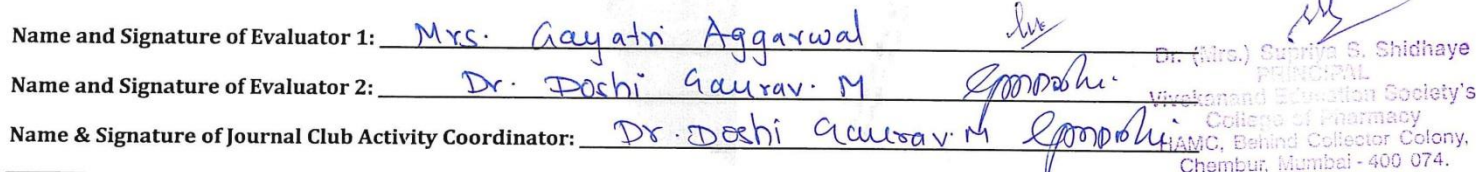 Name and Signature of Evaluator 1: Mrs. Gayatri Aggarwal
Name and Signature of Evaluator 2: Dr. Doshi Gaurav. M
Name & Signature of Journal Club Activity Coordinator: Dr. Doshi Gaurav. M
Dr. (Mrs.) Supriya S. Shidhaye
PRINCIPAL
Vivekanand Education Society's
College of Pharmacy
HAMC, Behind Collector Colony,
Chembur, Mumbai - 400 074.